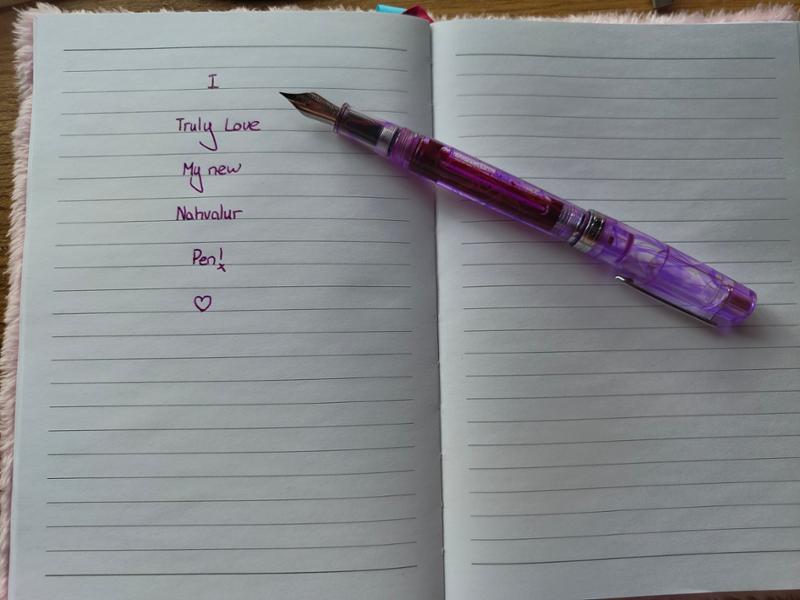 I
Truly Love
My new
Nahvalur
Pen!
x
♡